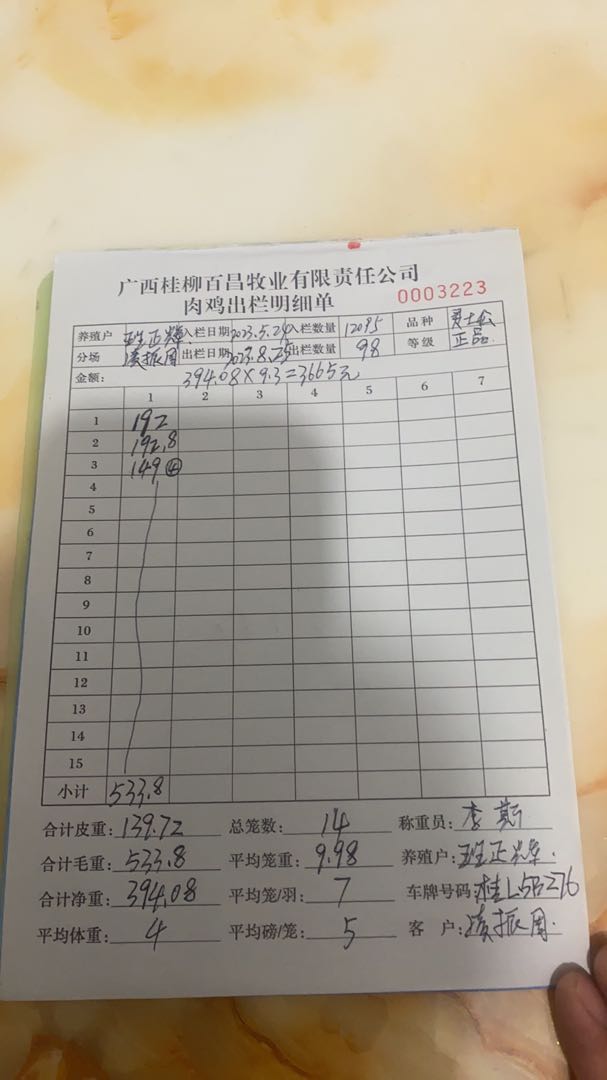 广西桂柳百昌牧业有限责任公司
肉鸡出栏明细单 0003223
养殖户 班正辉 入栏日期 2023.5.24 入栏数量 12095 品种
分场 凌振周 出栏日期 2023.8.25 出栏数量 98 等级 正品.
金额: 394.08×9.3=3665元
1 2 3 4 5 6 7
1 192
2 192.8
3 149 ④
4
5
6
7
8
9
10
11
12
13
14
15
小计 533.8
合计皮重: 139.72 总笼数: 14 称重员: 李斯
合计毛重: 533.8 平均笼重: 9.98 养殖户: 班正辉.
合计净重: 394.08 平均笼/羽: 7 车牌号码: 桂L5B276
平均体重: 4 平均磅/笼: 5 客户: 凌振周.